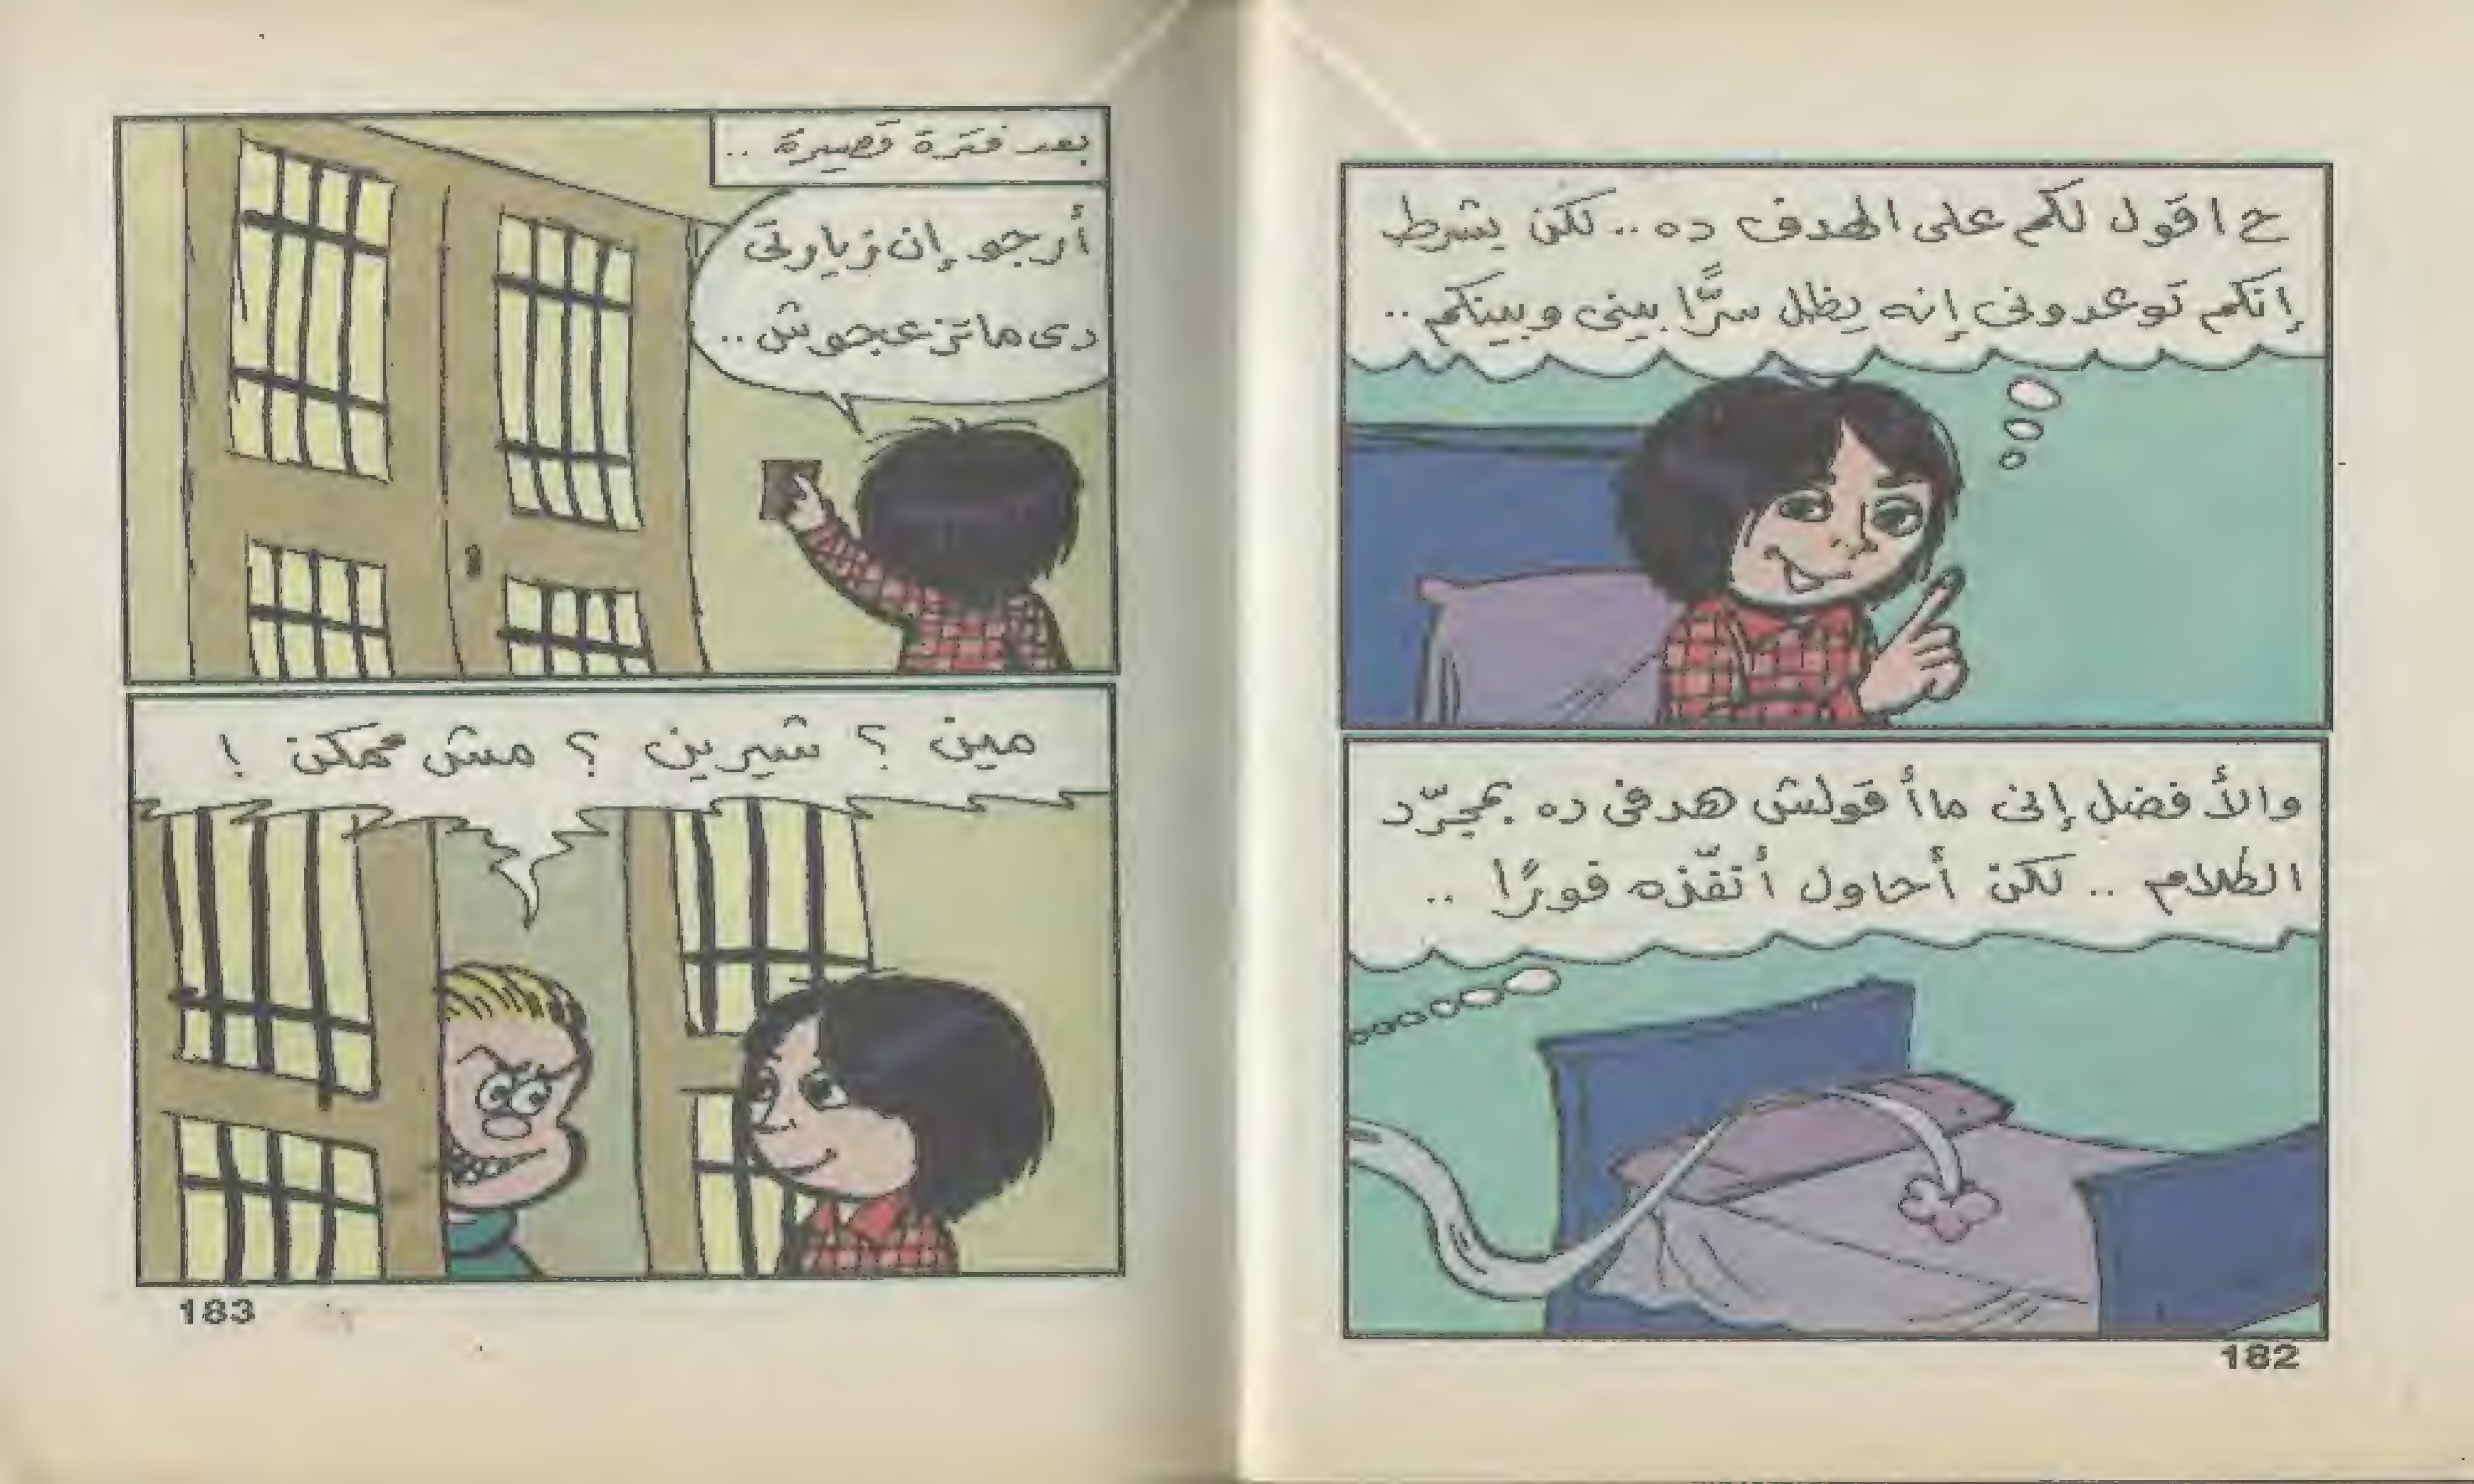 ح اقول لكم على الهدف ده .. لكن بشرط
إنكم توعدونى إنه يظل سرًّا بينى وبينكم ..
والأفضل إنى ماأقولش هدفى ده بمجرّد
الظلام .. لكن أحاول أنفّذه فورًا ..
182
بعد فترة قصيرة ..
أرجو إن زيارتى
دى ماتزعجوش ..
مين ؟ شيرين ؟ مش ممكن !
183